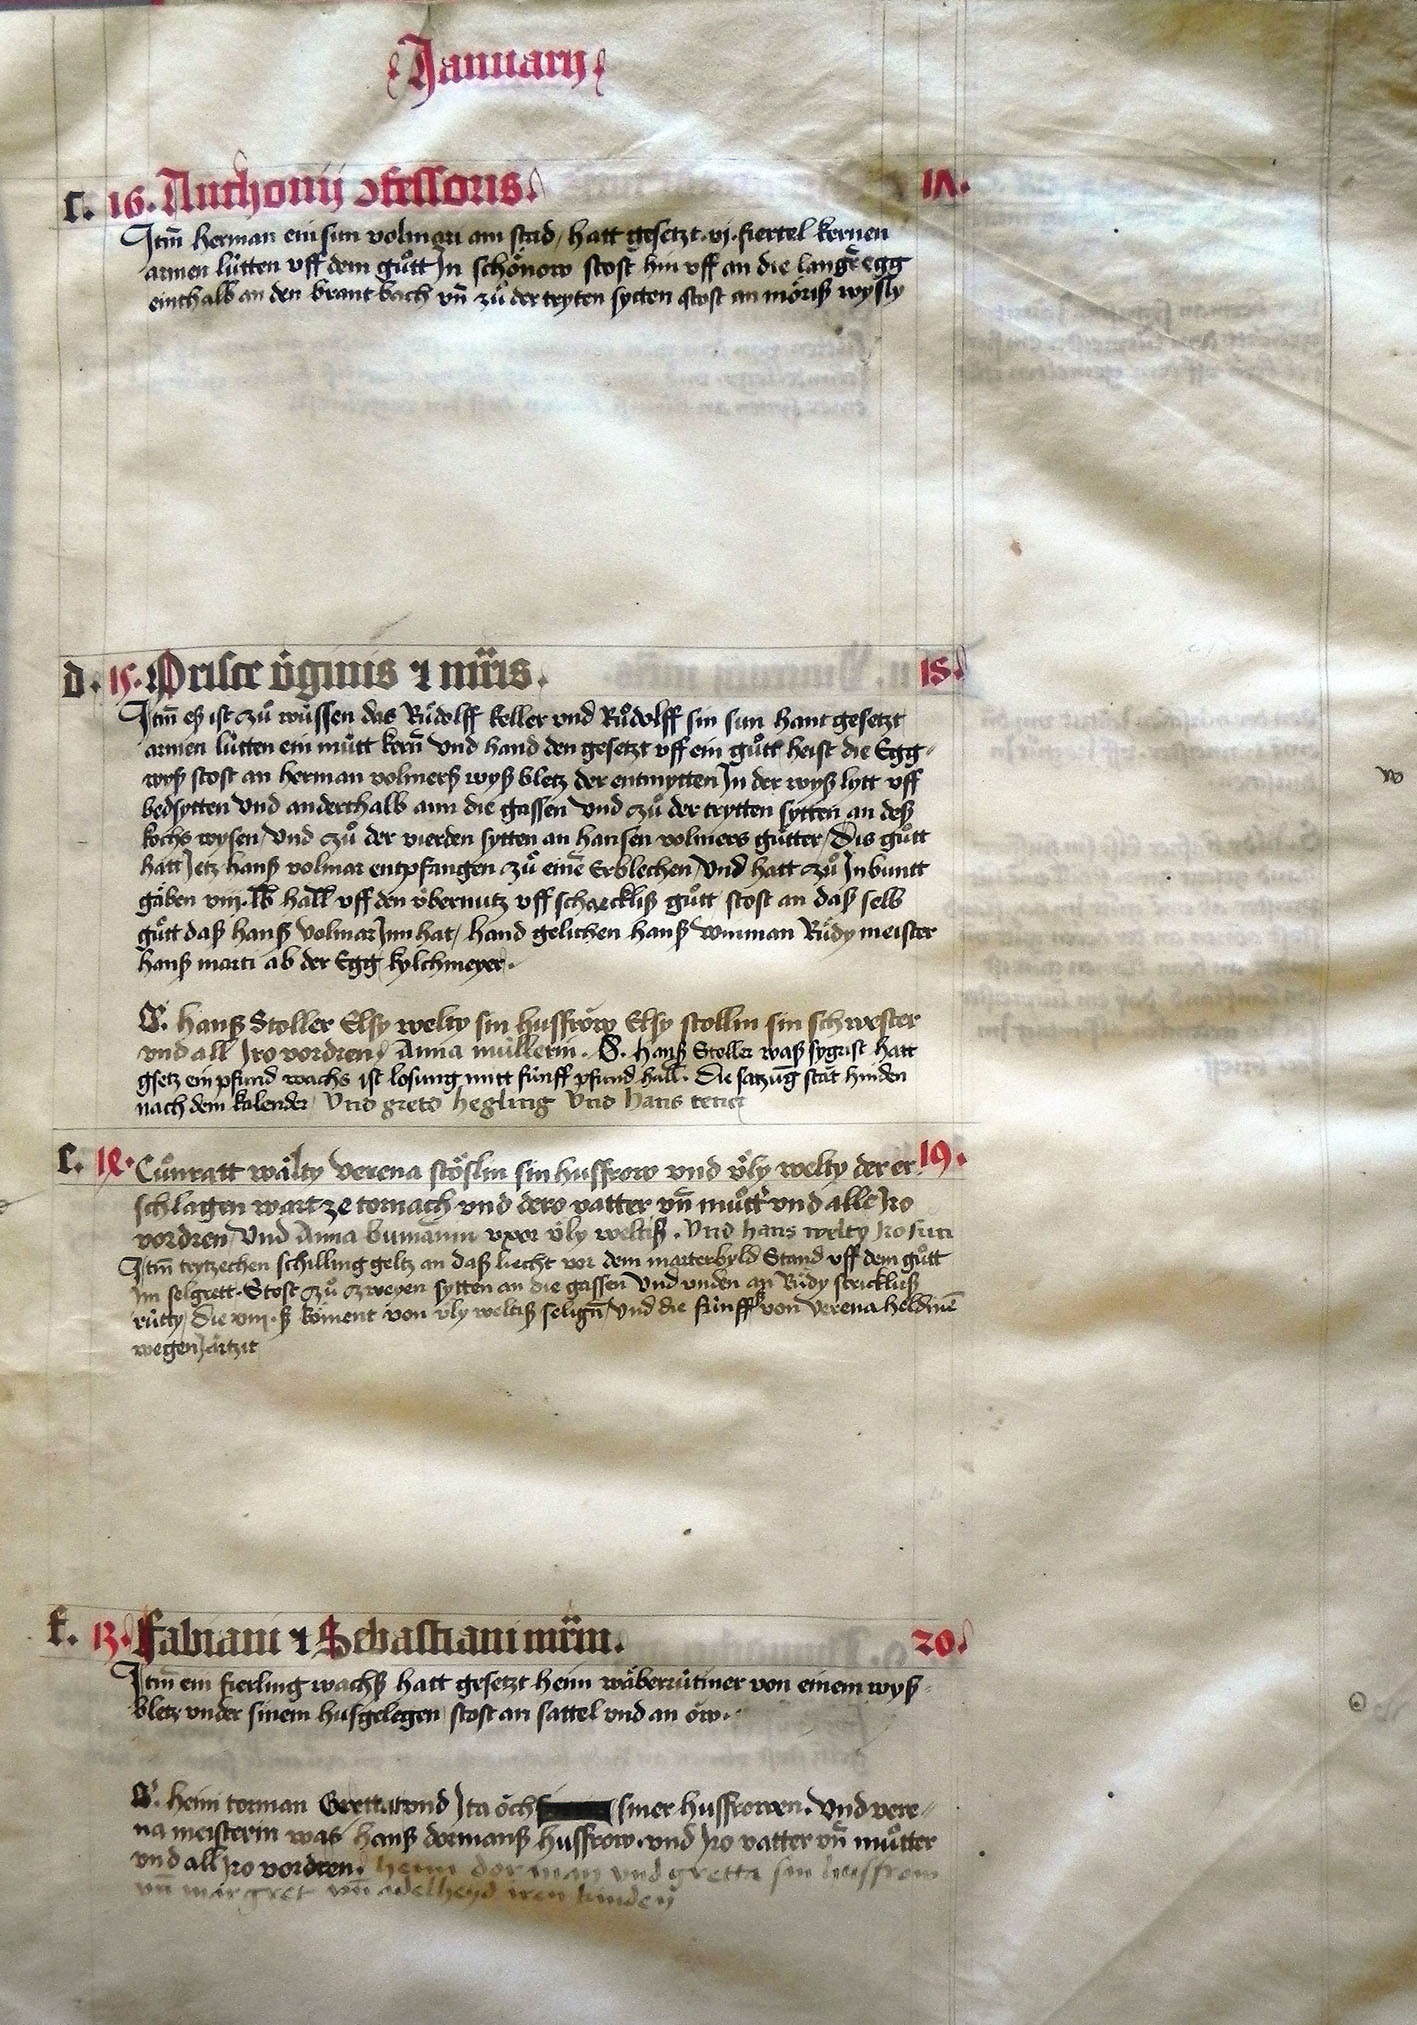 January
c. 16. Anthonii ɔfessoris. 17.
Itm̄ herman ein sun volmari am stad / hatt gesetzt .vj. fiertel kernen
armen lütten vff dem gůtt Jn schönow stost hin vff an die lang egg
einthalb an den brant bach vn̄ zů der tryten sytten stost an möriß wysly
d. 15. Prisce v̈ginis ⁊ mr̄is. 18.
Itm̄ eß ist zů wüssen das Růdolff keller vnd Růdolff sin sun hant gesetzt
armen lütten ein mütt kern̄ vnd hand den gesetzt vff ein gůtt heist die Egg-
wyß stost an herman volmerß wyß bletz der entmytten Jn der wyß lytt vff
bedsytten vnd anderthalb ann die gassen vnd zů der trytten sytten an deß
kochs wysen / vnd zů der vierden sytten an hansen volmers gütter / Dis gůtt
hatt Jetz hanß volmar entpfangen zů einē Erblechen / vnd hatt zů Jnbuntt
gäben viij. lb hall vff den übernutz vff schäckliß gůtt stost an daß selb
gůtt daß hanß volmar Jnn hat / hand gelichen hanß winman Rüdy meister
hanß marti ab der Egg kylchmeyer.
hanß Stoller Elsy welty sin husfrow Elsy stollin sin schwester
vnd all Jro vordren / Anna müllerin. hanß Stoller waß sygrist hatt
gsetz ein pfund wachs ist losung mitt fünff pfund hall. Die satzūg stät hinden
nach dem kalender / vnd greta hegling vnd hans
e. 12. Cůnratt wälty verena stöslin sin husfrow vnd üly welty der er 19.
schlagen wart ze tornach vnd dero vatter vn̄ můtt vnd alle Jro
vordren / vnd Anna bumanin vxor üly weltiß. vnd hans welty Jro sun
Itm̄ trytzechen schilling geltz an daß liecht vor dem marterbyld Stand vff dem gůtt
Jm selgrett. Stost zů zweyen sytten an die gassen vnd vnden an Rüdy strickliß
rütty / Die viij. ß koment von üly weltiß selign̄ / vnd die fünff ß von verena heldinē
wegen Jartzit
f. 13. Fabiani ⁊ Sebastiani mr̄m. 20.
Itm̄ ein fierling wachß hatt gesetzt heini wäberrütiner von einem wyß-
bletz vnder sinem hus gelegen / stost an sattel vnd an öw.
heini torman Gretta vnd Jta öch siner husfrowen. vnd vere-
na meisterin was hanß dormanß husfrow. vnd Jro vatter vn̄ můtter
vnd all Jro vordren. heini dorman vnd gretta sin husfrow
vn̄ margret vn̄ adelheyd iren kinden